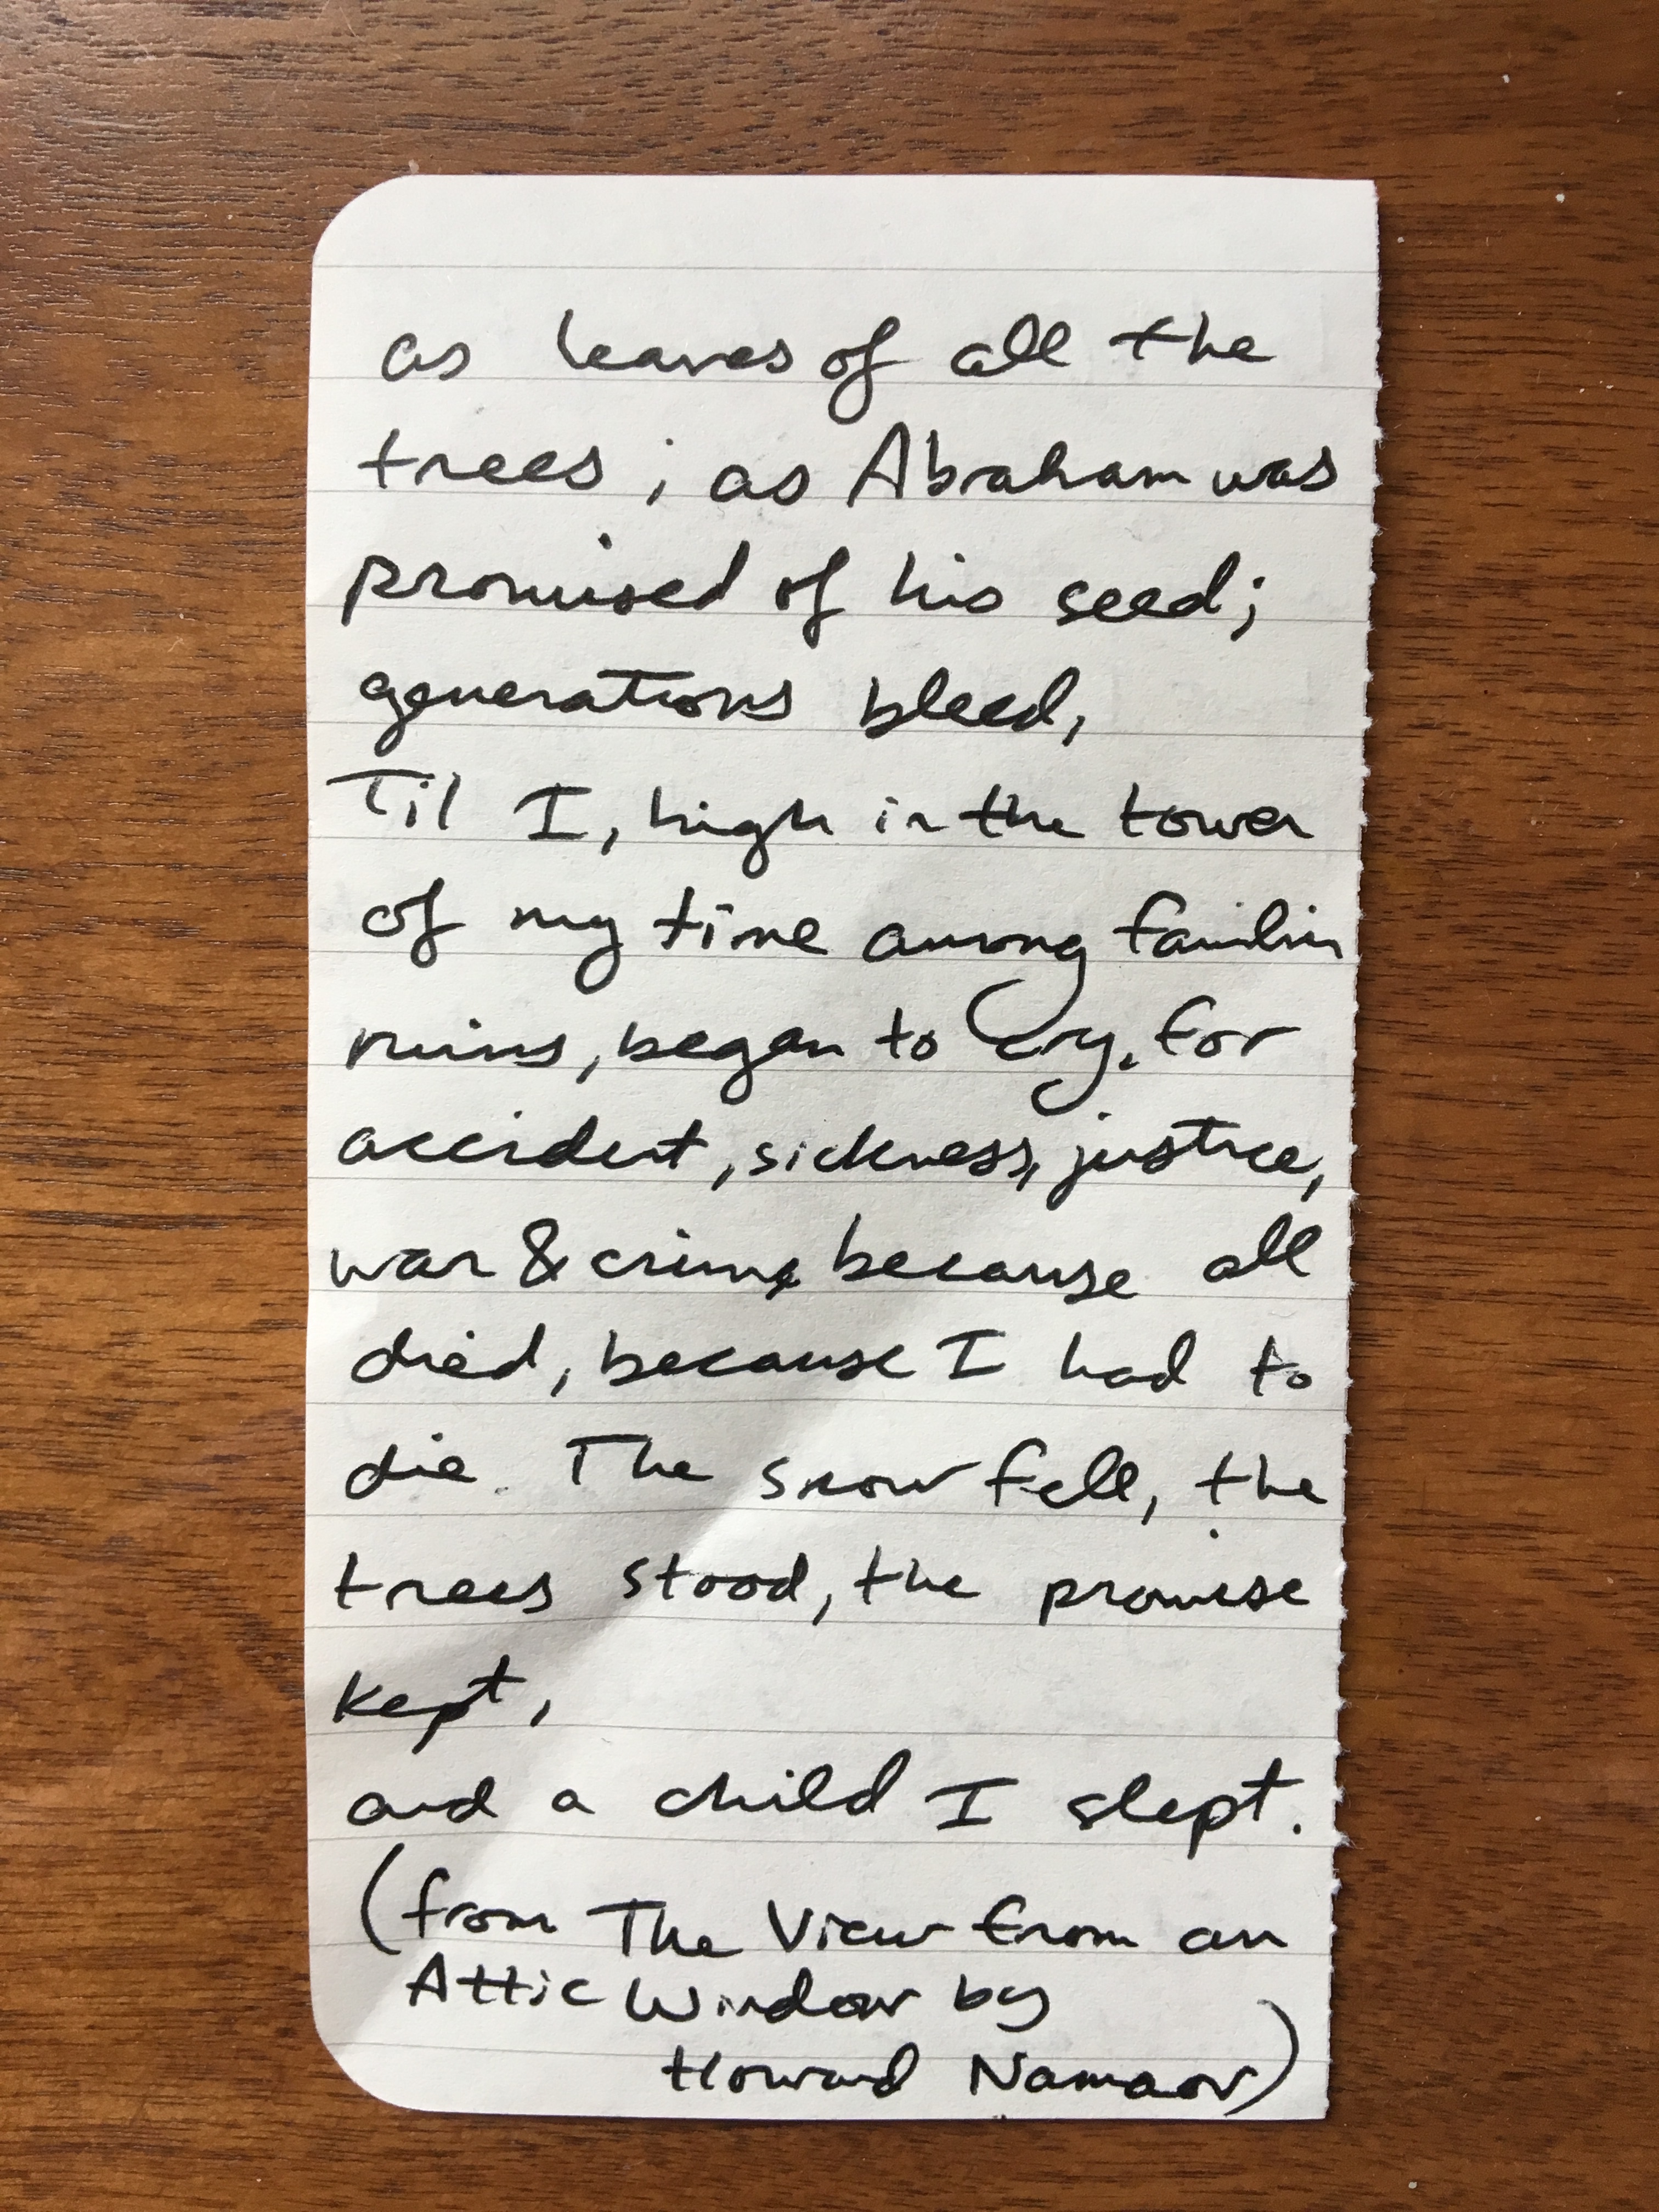 as leaves of all the
trees; as Abraham was
promised of his seed;
generations bleed,
Til I, high in the tower
of my time among familiar
ruins, began to cry. For
accident, sickness, justice,
war & crime because all
died, because I had to
die. The snow fell, the
trees stood, the promise
kept,
and a child I slept.
(from The View from an
Attic Window by
Howard Namaov)